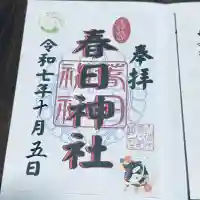 奉拝
春日神社
令和七年十月五日